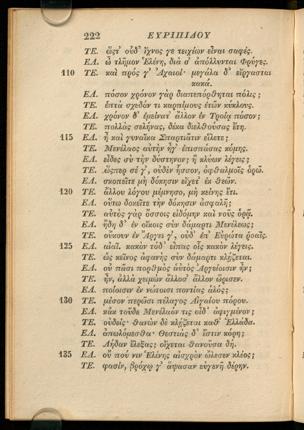 222 ΕΥΡΙΠΙΔΟΥ
ΤΕ. ὥστ' οὐδ' ἴχνος γε τειχέων εἶναι σαφές.
ΕΛ. ὦ τλῆμον Ἑλένη, διὰ σ' ἀπόλλυνται Φρύγες.
110 ΤΕ. καὶ πρός γ' Ἀχαιοί· μεγάλα δ' εἴργασται
κακά.
ΕΛ. πόσον χρόνον γὰρ διαπεπόρθηται πόλις;
ΤΕ. ἑπτὰ σχεδόν τι καρπίμους ἐτῶν κύκλους.
ΕΛ. χρόνον δ' ἐμείνατ' ἄλλον ἐν Τροίᾳ πόσον;
ΤΕ. πολλὰς σελήνας, δέκα διελθούσας ἔτη.
115 ΕΛ. ἦ καὶ γυναῖκα Σπαρτιᾶτιν εἵλετε;
ΤΕ. Μενέλαος αὐτὴν ἦγ' ἐπισπάσας κόμης.
ΕΛ. εἶδες σὺ τὴν δύστηνον; ἢ κλύων λέγεις;
ΤΕ. ὥσπερ σέ γ', οὐδὲν ἧσσον, ὀφθαλμοῖς ὁρῶ.
ΕΛ. σκοπεῖτε μὴ δόκησιν εἴχετ' ἐκ θεῶν.
120 ΤΕ. ἄλλου λόγου μέμνησο, μὴ κείνης ἔτι.
ΕΛ. οὕτω δοκεῖτε τὴν δόκησιν ἀσφαλῆ;
ΤΕ. αὐτὸς γὰρ ὄσσοις εἰδόμην καὶ νοῦς ὁρᾷ.
ΕΛ. ἤδη δ' ἐν οἴκοις σὺν δάμαρτι Μενέλεως;
ΤΕ. οὔκουν ἐν Ἄργει γ', οὐδ' ἐπ' Εὐρώτα ῥοαῖς.
125 ΕΛ. αἰαῖ. κακὸν τόδ' εἶπας οἷς κακὸν λέγεις.
ΤΕ. ὡς κεῖνος ἀφανὴς σὺν δάμαρτι κλῄζεται.
ΕΛ. οὐ πᾶσι πορθμὸς αὑτὸς Ἀργείοισιν ἦν;
ΤΕ. ἦν, ἀλλὰ χειμὼν ἄλλοσ' ἄλλον ὥρισεν.
ΕΛ. ποίοισιν ἐν νώτοισι ποντίας ἁλός;
130 ΤΕ. μέσον περῶσι πέλαγος Αἰγαίου πόρου.
ΕΛ. κἀκ τοῦδε Μενέλαόν τις οἶδ' ἀφιγμένον;
ΤΕ. οὐδείς· θανὼν δὲ κλῄζεται καθ' Ἑλλάδα.
ΕΛ. ἀπωλόμεσθα· Θεστιὰς δ' ἔστιν κόρη;
ΤΕ. Λήδαν ἔλεξας; οἴχεται θανοῦσα δή.
135 ΕΛ. οὔ πού νιν Ἑλένης αἰσχρὸν ὤλεσεν κλέος;
ΤΕ. φασίν, βρόχῳ γ' ἅψασαν εὐγενῆ δέρην.